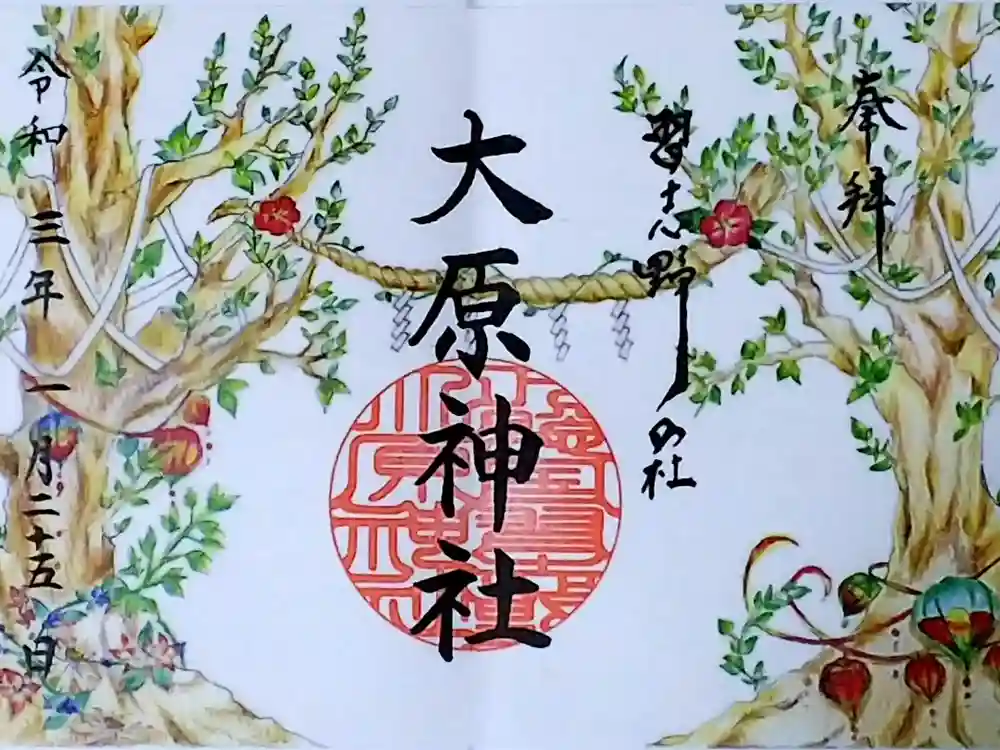 奉拝
習志野の杜
大原神社
令和三年一月二十五日